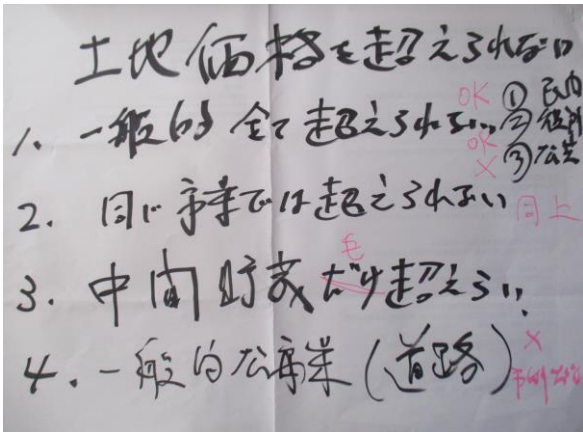 土地価格を超えられない
1. 一般的 全て超えられない OK ① 民間
OK ② 役所
X ③ 公共
2. 同じ事業では超えられない 同上
3. 中間貯蔵だけ超えらい. も
4. 一般的公事業(道路) X